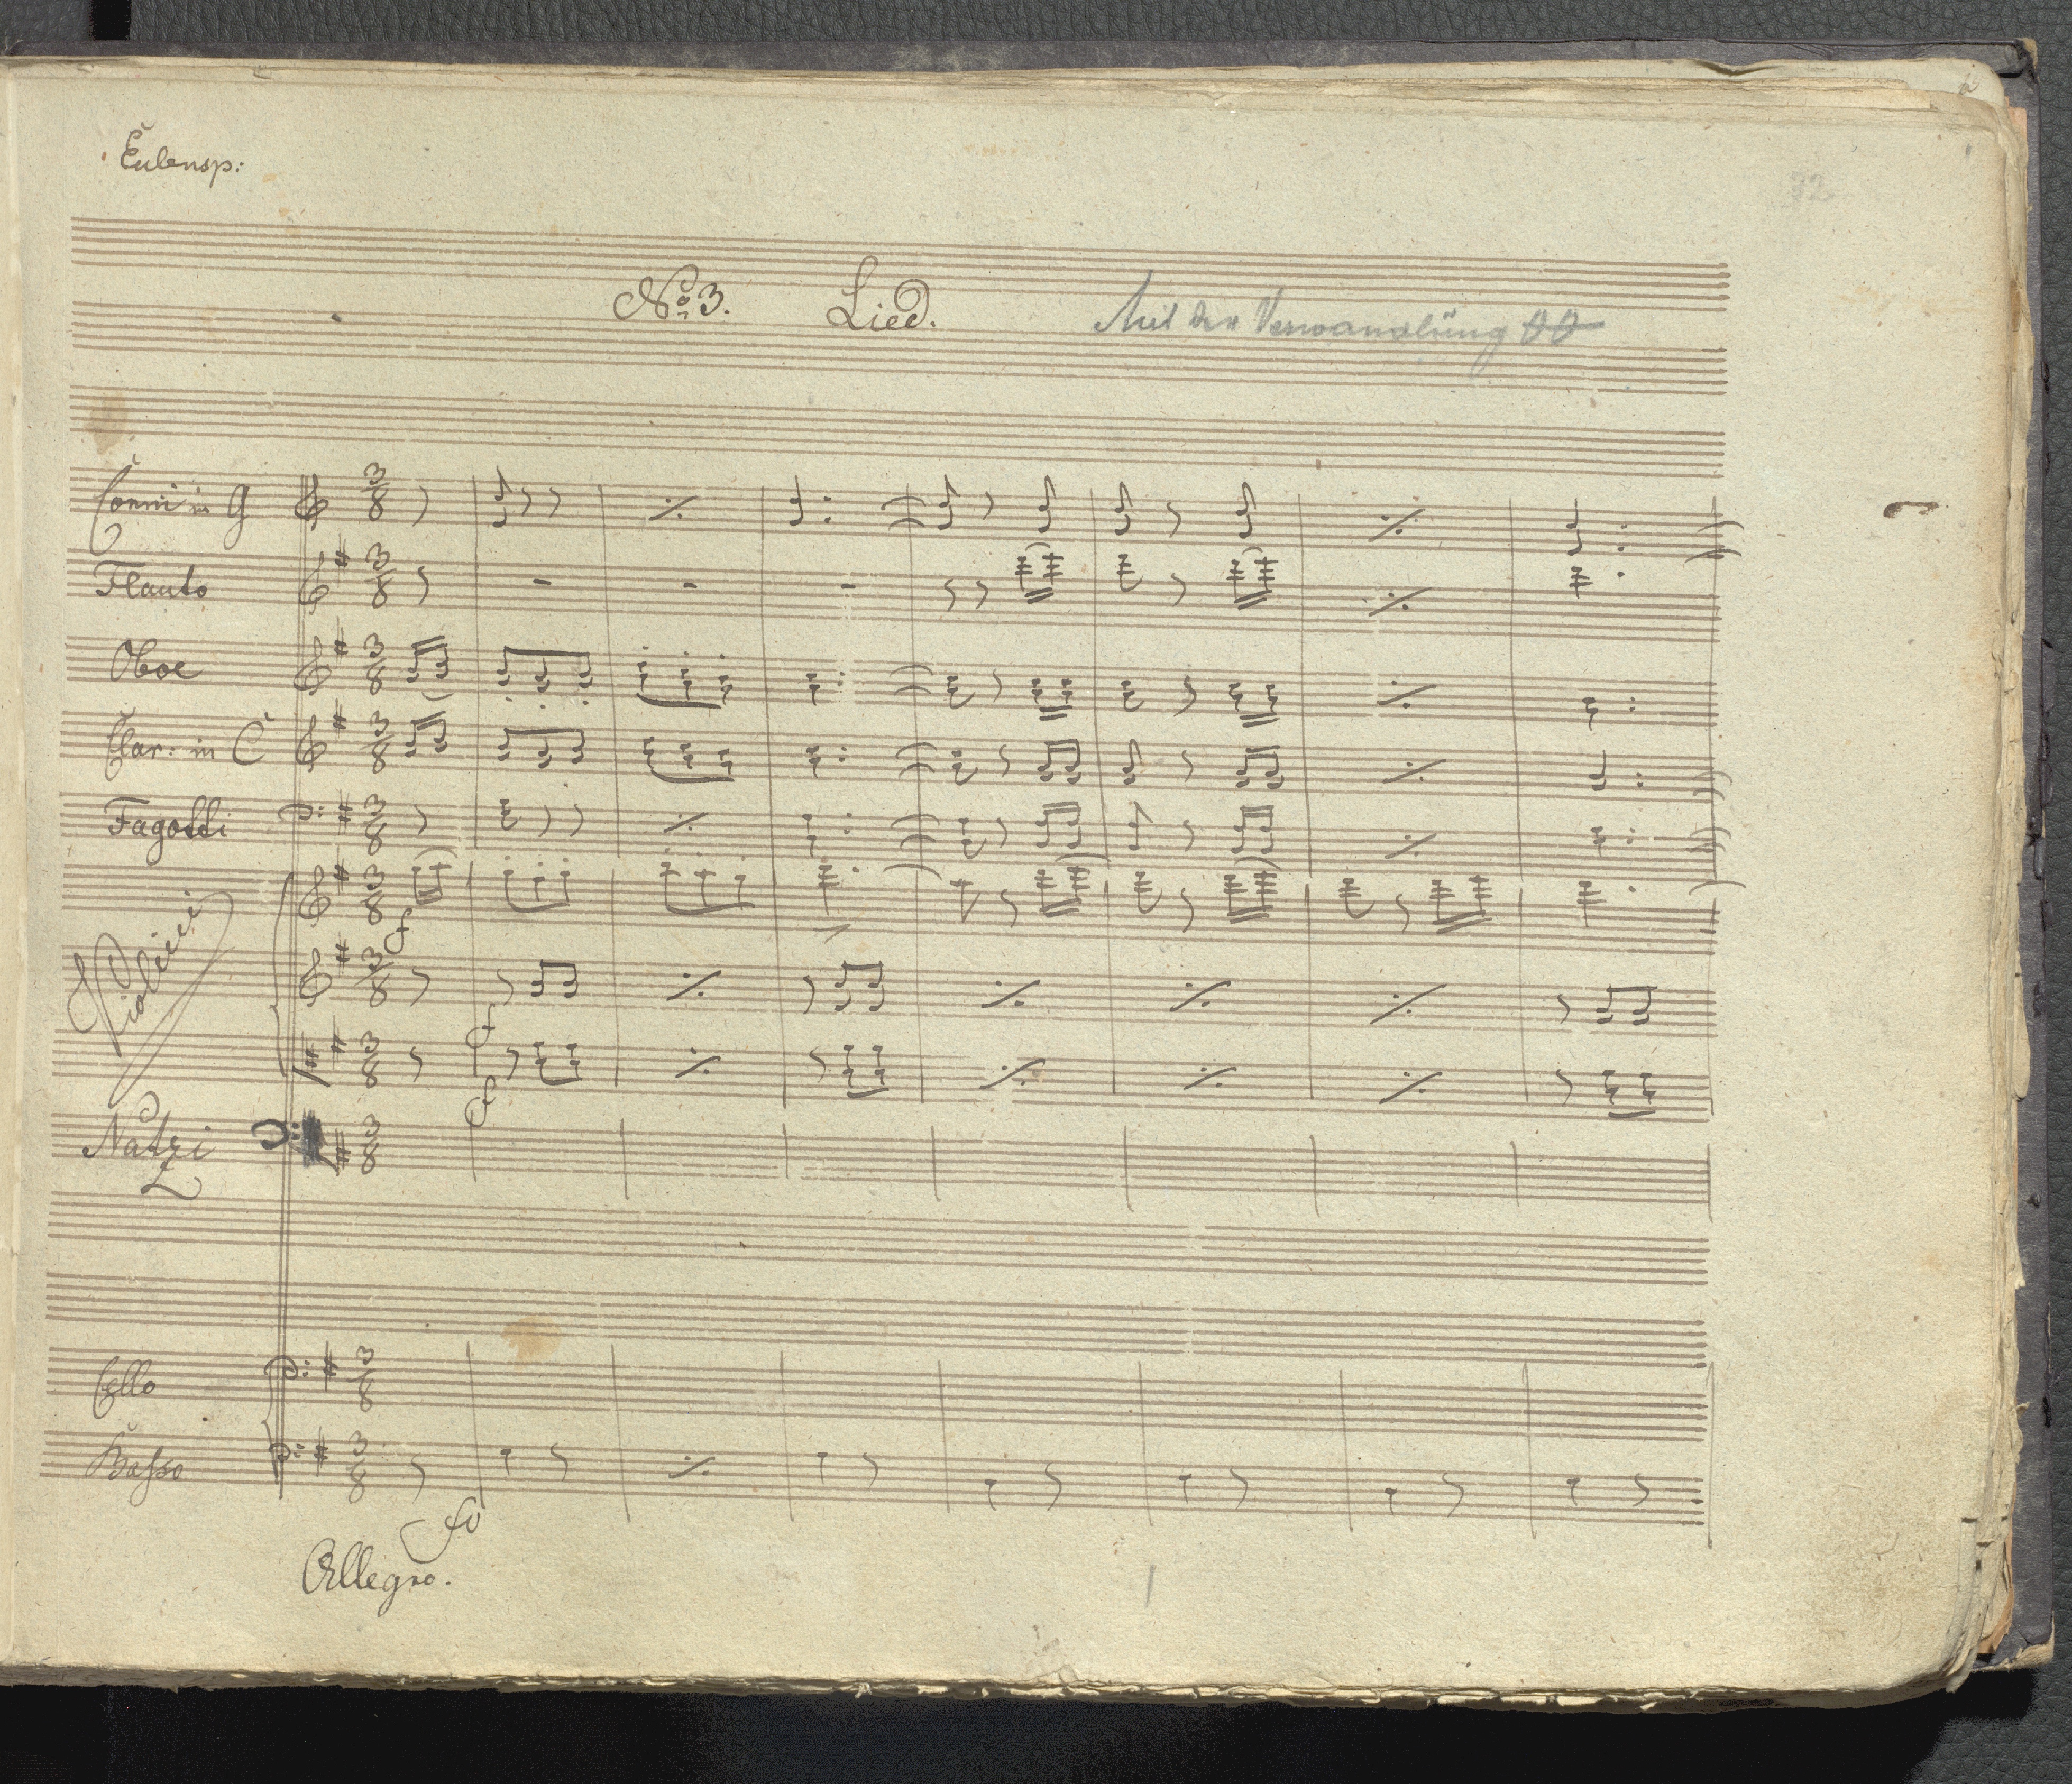 Eulensp:
92
No. 3. Lied. Mit der Verwandlung
Corni in G
Flauto
Oboe
Clar: in C
Fagotti
Violini
f
f
f
Natzi
Cello
Basso
fo
Allegro.